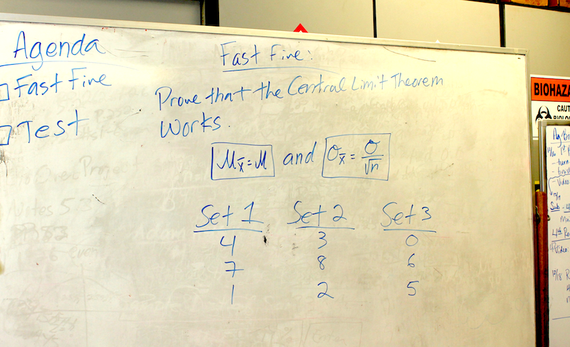 Agenda
Fast Fine
Test
Fast Fine:
Prove that the Central Limit Theorem
Works.
μx̄=μ and σx̄=σ/√n
Set 1 Set 2 Set 3
4 3 0
7 8 6
1 2 5
BIOHAZA
CAUT